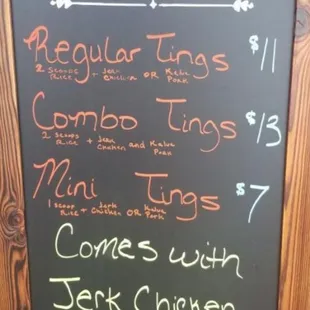 Regular Tings $11
2 Scoops Rice + Jerk Chicken OR Kalua Pork
Combo Tings $13
2 Scoops Rice + Jerk Chicken and Kalua Pork
Mini Tings $7
1 Scoop Rice + Jerk Chicken OR Kalua Pork
Comes with
Jerk Chicken